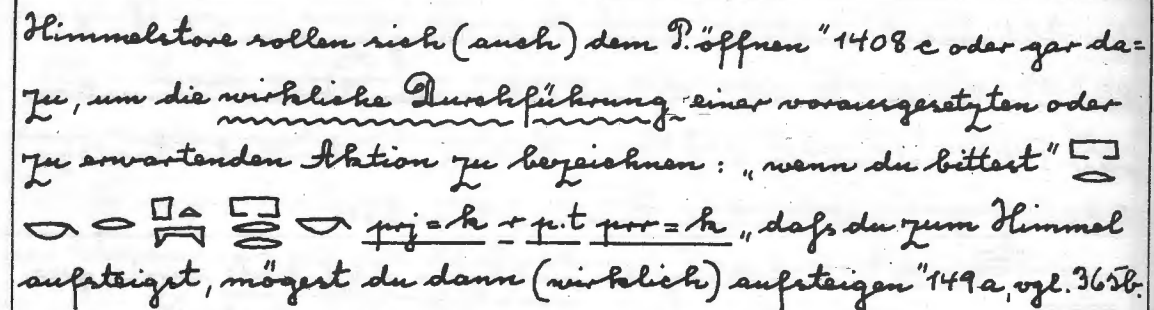 Himmelstore sollen sich (auch) dem P. öffnen" 1408 c oder gar da=
zu, um die wirkliche Durchführung einer vorausgesetzten oder
zu erwartenden Aktion zu bezeichnen : „wenn du bittest" 𓉐𓂋
𓎡 𓂋 𓊪𓏏𓇯 𓉐𓂋𓂋 𓎡 prj=k r p.t prr=k „daſs du zum Himmel
aufsteigst, mögest du dann (wirklich) aufsteigen" 149 a, vgl. 365b.